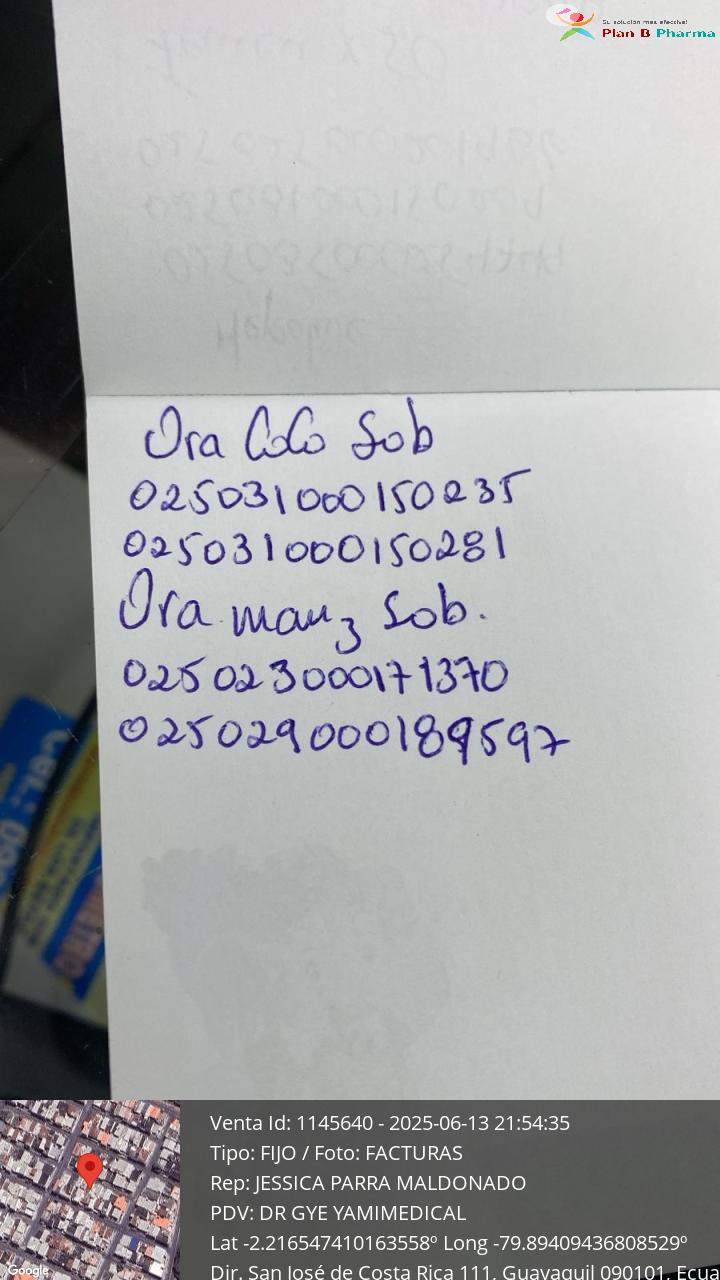 Su solución más efectiva!
Plan B Pharma
Ora CoCo Sob
025031000150235
025031000150281
Ora manz Sob.
025023000171370
025029000189597
Venta Id: 1145640 - 2025-06-13 21:54:35
Tipo: FIJO / Foto: FACTURAS
Rep: JESSICA PARRA MALDONADO
PDV: DR GYE YAMIMEDICAL
Lat -2.216547410163558º Long -79.89409436808529º
Dir. San José de Costa Rica 111, Guayaquil 090101, Ecua
Google